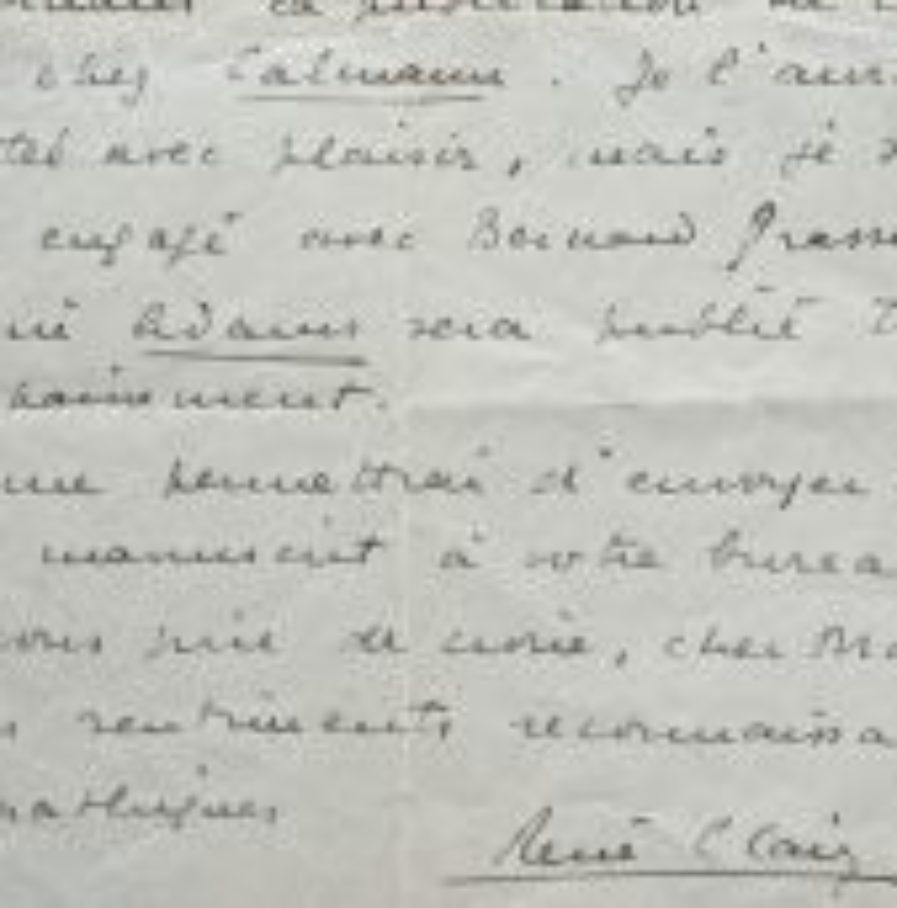 chez Calmann. Je l'aur
tés avec plaisir, mais je
engagé avec Bernard Grass
Adams sera publié
hainement.
me permettrai d'envoyer
manuscrit à votre burea
vous prie de croire, cher Mo
sentiments reconnaissa
mathiques
René Clair